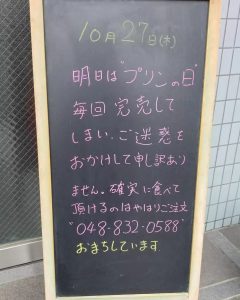 10月27日(木)
明日は"プリンの日"
毎回完売して
しまい、ご迷惑を
おかけして申し訳あり
ません。確実に食べて
頂けるのはやはりご注文
"048-832-0588"
おまちしています